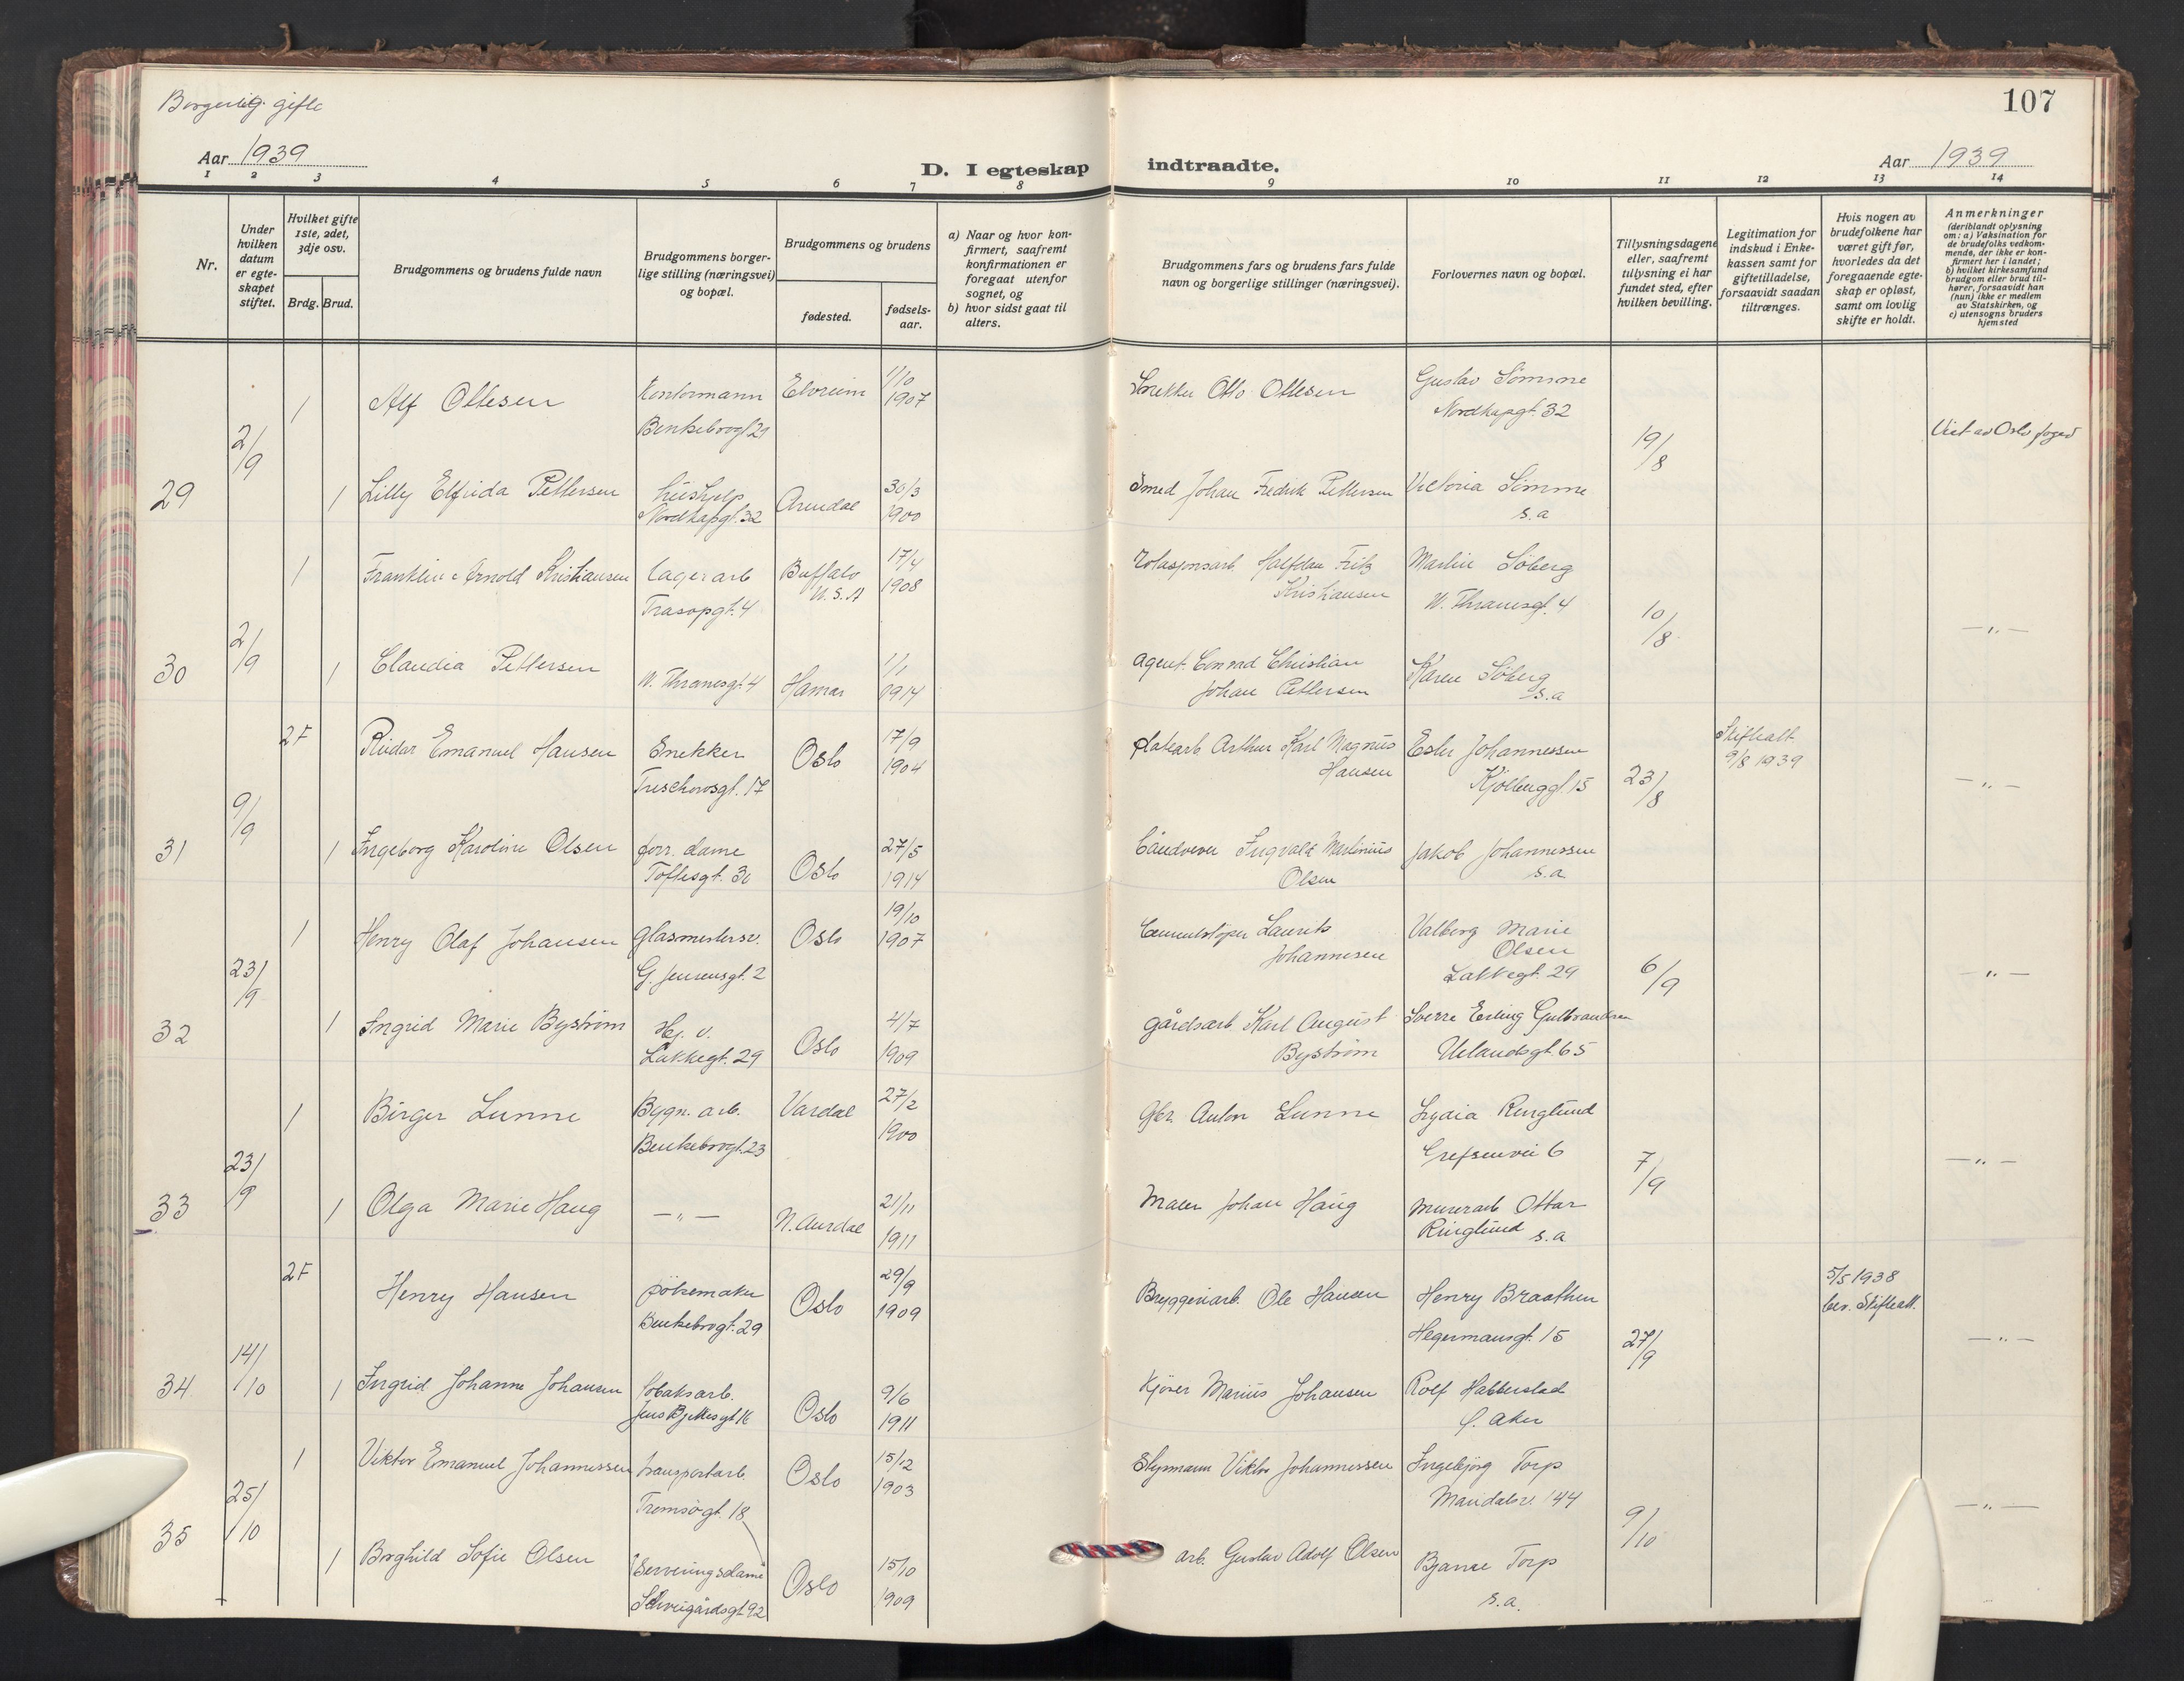 Borgerlig gifte
107
Aar 1939
D. I egteskap indtraadte.
Aar 1939
1 2 3 4 5 6 7 8 9 10 11 12 13 14
Nr.
Under hvilken datum er egte-skapet stiftet.
Hvilket gifte 1ste, 2det, 3dje osv.
Brdg. Brud.
Brudgommens og brudens fulde navn
Brudgommens borger-lige stilling (næringsvei) og bopæl.
Brudgommens og brudens
fødested.
fødsels-aar.
a) Naar og hvor kon-firmert, saafremt konfirmationen er foregaat utenfor sognet, og
b) hvor sidst gaat til alters.
Brudgommens fars og brudens fars fulde navn og borgerlige stillinger (næringsvei).
Forlovernes navn og bopæl.
Tillysningsdagene eller, saafremt tillysning ei har fundet sted, efter hvilken bevilling.
Legitimation for indskud i Enke-kassen samt for giftetilladelse, forsaavidt saadan tiltrænges.
Hvis nogen av brudefolkene har været gift før, hvorledes da det foregaaende egte-skap er opløst, samt om lovlig skifte er holdt.
Anmerkninger (deriblandt oplysning om: a) Vaksination for de brudefolks vedkom-mende, der ikke er kon-firmert her i landet; b) hvilket kirkesamfund brudgom eller brud til-hører, forsaavidt han (hun) ikke er medlem av Statskirken, og c) utensogns bruders hjemsted
29 2/9
1 Alf Ottesen Kontormann Elverum 1/10 1907
Benkebrogt 21
Snekker Otto Ottesen Gustav Sømme
Nordkapgt. 32
19/8
Viet av Oslo foged
1 Lilly Elfrida Pettersen hushjelp Arendal 30/3 1900
Nordkapgt. 32
Smed Johan Fredrik Pettersen Victoria Sømme
s.a
30 2/9
1 Franklin Arnold Kristiansen lagerarb Buffalo U.S.A 17/4 1908
Trasopgt. 4
Rotasjonsarb. Halfdan Fritz Kristiansen Martin Söberg
W. Thranesgt. 4
10/8
— " —
1 Claudia Pettersen W. Thranesgt. 4 Hamar 1/1 1914
Agent. Conrad Christian Johan Pettersen Karen Söberg
s.a
31 9/9
2F Reidar Emanuel Hansen Snekker Oslo 17/9 1904
Treschowsgt. 17
Arthur Karl Magnus Hansen Ester Johannessen
Kjölberggt. 15
23/8
Skifteatt 9/8 1939
— " —
1 Ingeborg Karoline Olsen forr. dame Oslo 27/5 1914
Toftesgt. 30
Ingvald Martinius Olsen Jakob Johannessen
s.a
32 23/9
1 Henry Olaf Johansen glasmestersv. Oslo 19/10 1907
G. Jensensgt. 2
Cementstøper Laurits Johannesen Valborg Marie Olsen
Lakkegt. 29
6/9
— " —
1 Ingrid Marie Byström Hj. v. Oslo 4/7 1909
Lakkegt. 29
gårdsarb. Karl August Byström Sverre Erling Gulbrandsen
Uelandsgt. 65
33 23/9
1 Birger Lunne Bygn. arb. Vardal 27/2 1900
Benkebrogt. 23
Gbr. Anton Lunne Lydia Ringlund
Grefsenvei 6
7/9
— " —
1 Olga Marie Haug — " — N. Aurdal 21/11 1911
Maler Johan Haug Murerarb Ottar Ringlund s.a
34 14/10
2F Henry Hansen pølsemaker Oslo 29/9 1909
Benkebrogt. 29
Bryggeriarb. Ole Hansen Henry Braathen
Hegermansgt. 15
27/9
5/5 1938
bev. Skifteatt.
— " —
1 Ingrid Johanne Johansen tobaksarb. Oslo 9/6 1911
Jens Bjelkesgt 16
Kjører Marius Johansen Rolf Habberstad
Ø. Aker
35 25/10
1 Viktor Emanuel Johannessen transportarb. Oslo 15/12 1903
Tromsøgt. 18
Styrmann Viktor Johannessen Ingebjørg Torp
Maridalsv. 144
9/10
— " —
1 Borghild Sofie Olsen Serveringsdame Oslo 15/10 1909
Schweigårdsgt 92
arb. Gustav Adolf Olsen Bjarne Torp
s.a.